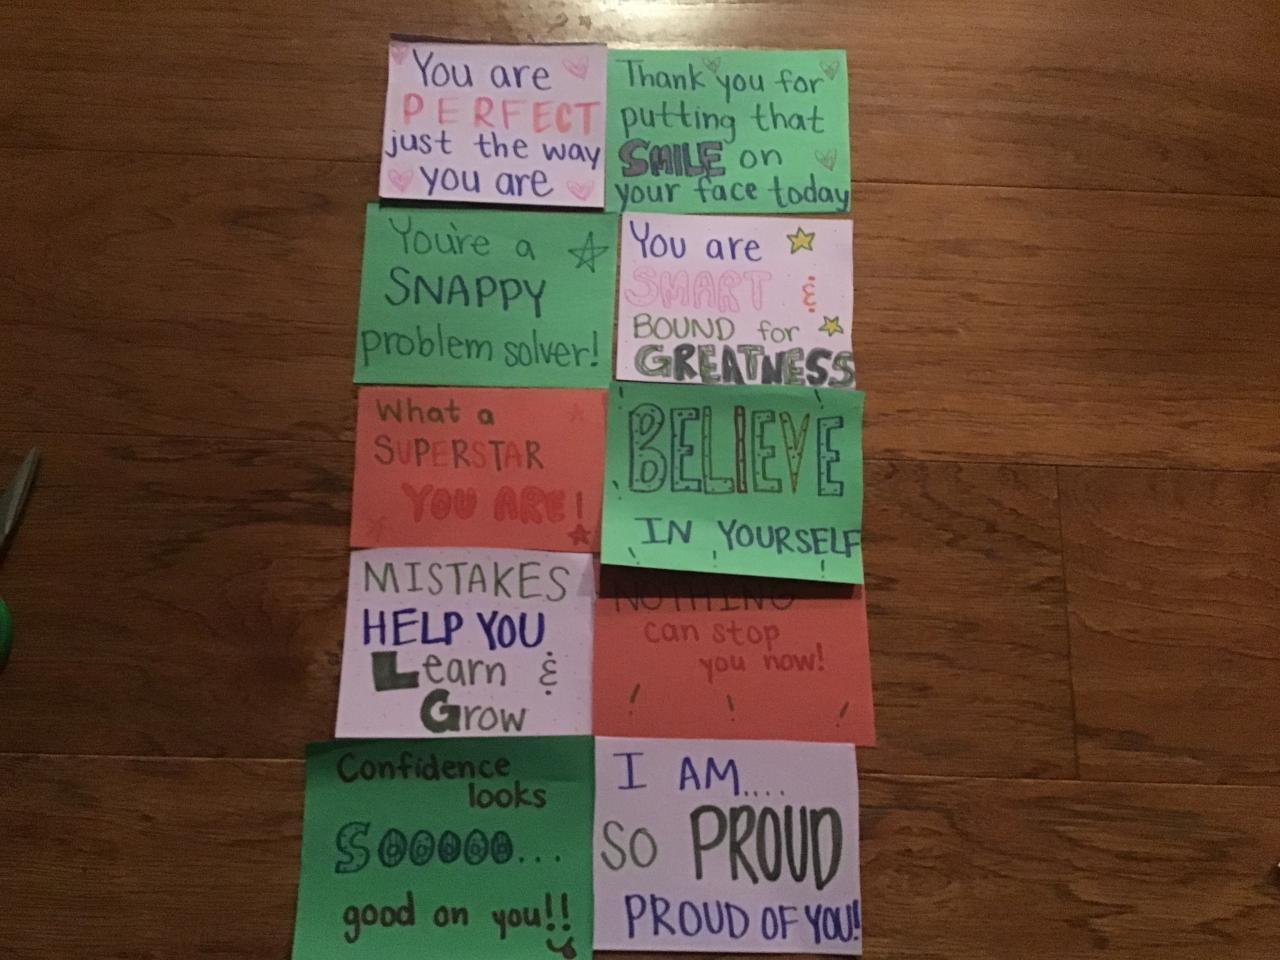 You are
PERFECT
just the way
you are
Thank you for
putting that
SMILE on
your face today
You're a
SNAPPY
problem solver!
You are
SMART &
BOUND for
GREATNESS
What a
SUPERSTAR
YOU ARE!
BELIEVE
IN YOURSELF
MISTAKES
HELP YOU
Learn &
Grow
NOTHING
can stop
you now!
Confidence
looks
SOOOOO...
good on you!!
I AM....
SO PROUD
PROUD OF YOU!